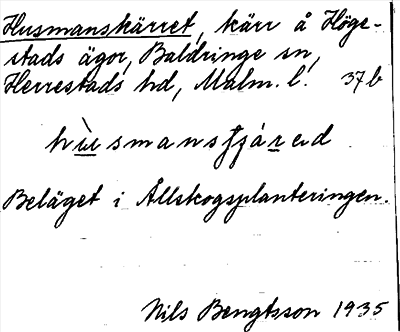 Husmanskärret, kärr å Höge-
stads ägor, Baldringe sn,
Herrestads hd, Malm. l. 37b
Beläget i Allskogsplanteringen.
Nils Bengtsson 1935